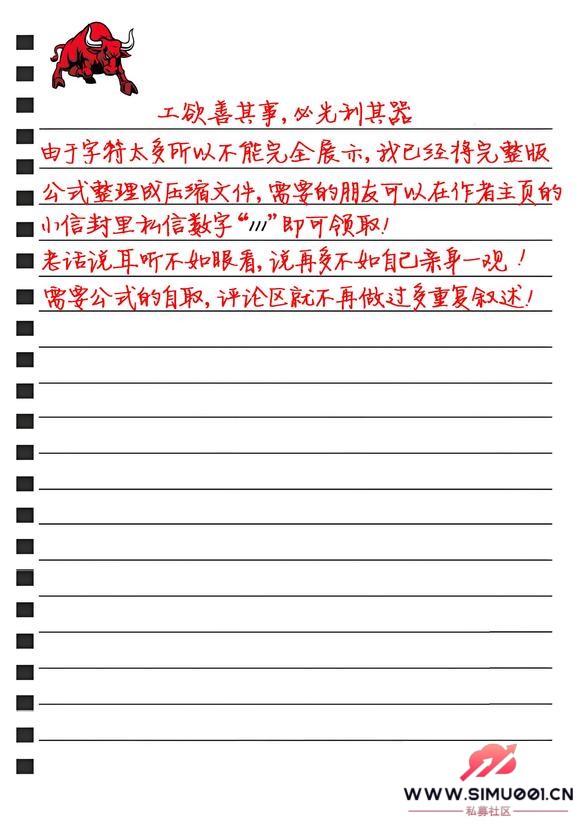 工欲善其事,必先利其器
由于字符太多所以不能完全展示,我已经将完整版
公式整理成压缩文件,需要的朋友可以在作者主页的
小信封里私信数字“111”即可领取!
老话说耳听不如眼看,说再多不如自己亲身一观!
需要公式的自取,评论区就不再做过多重复叙述!
WWW.SIMU001.CN
私募社区